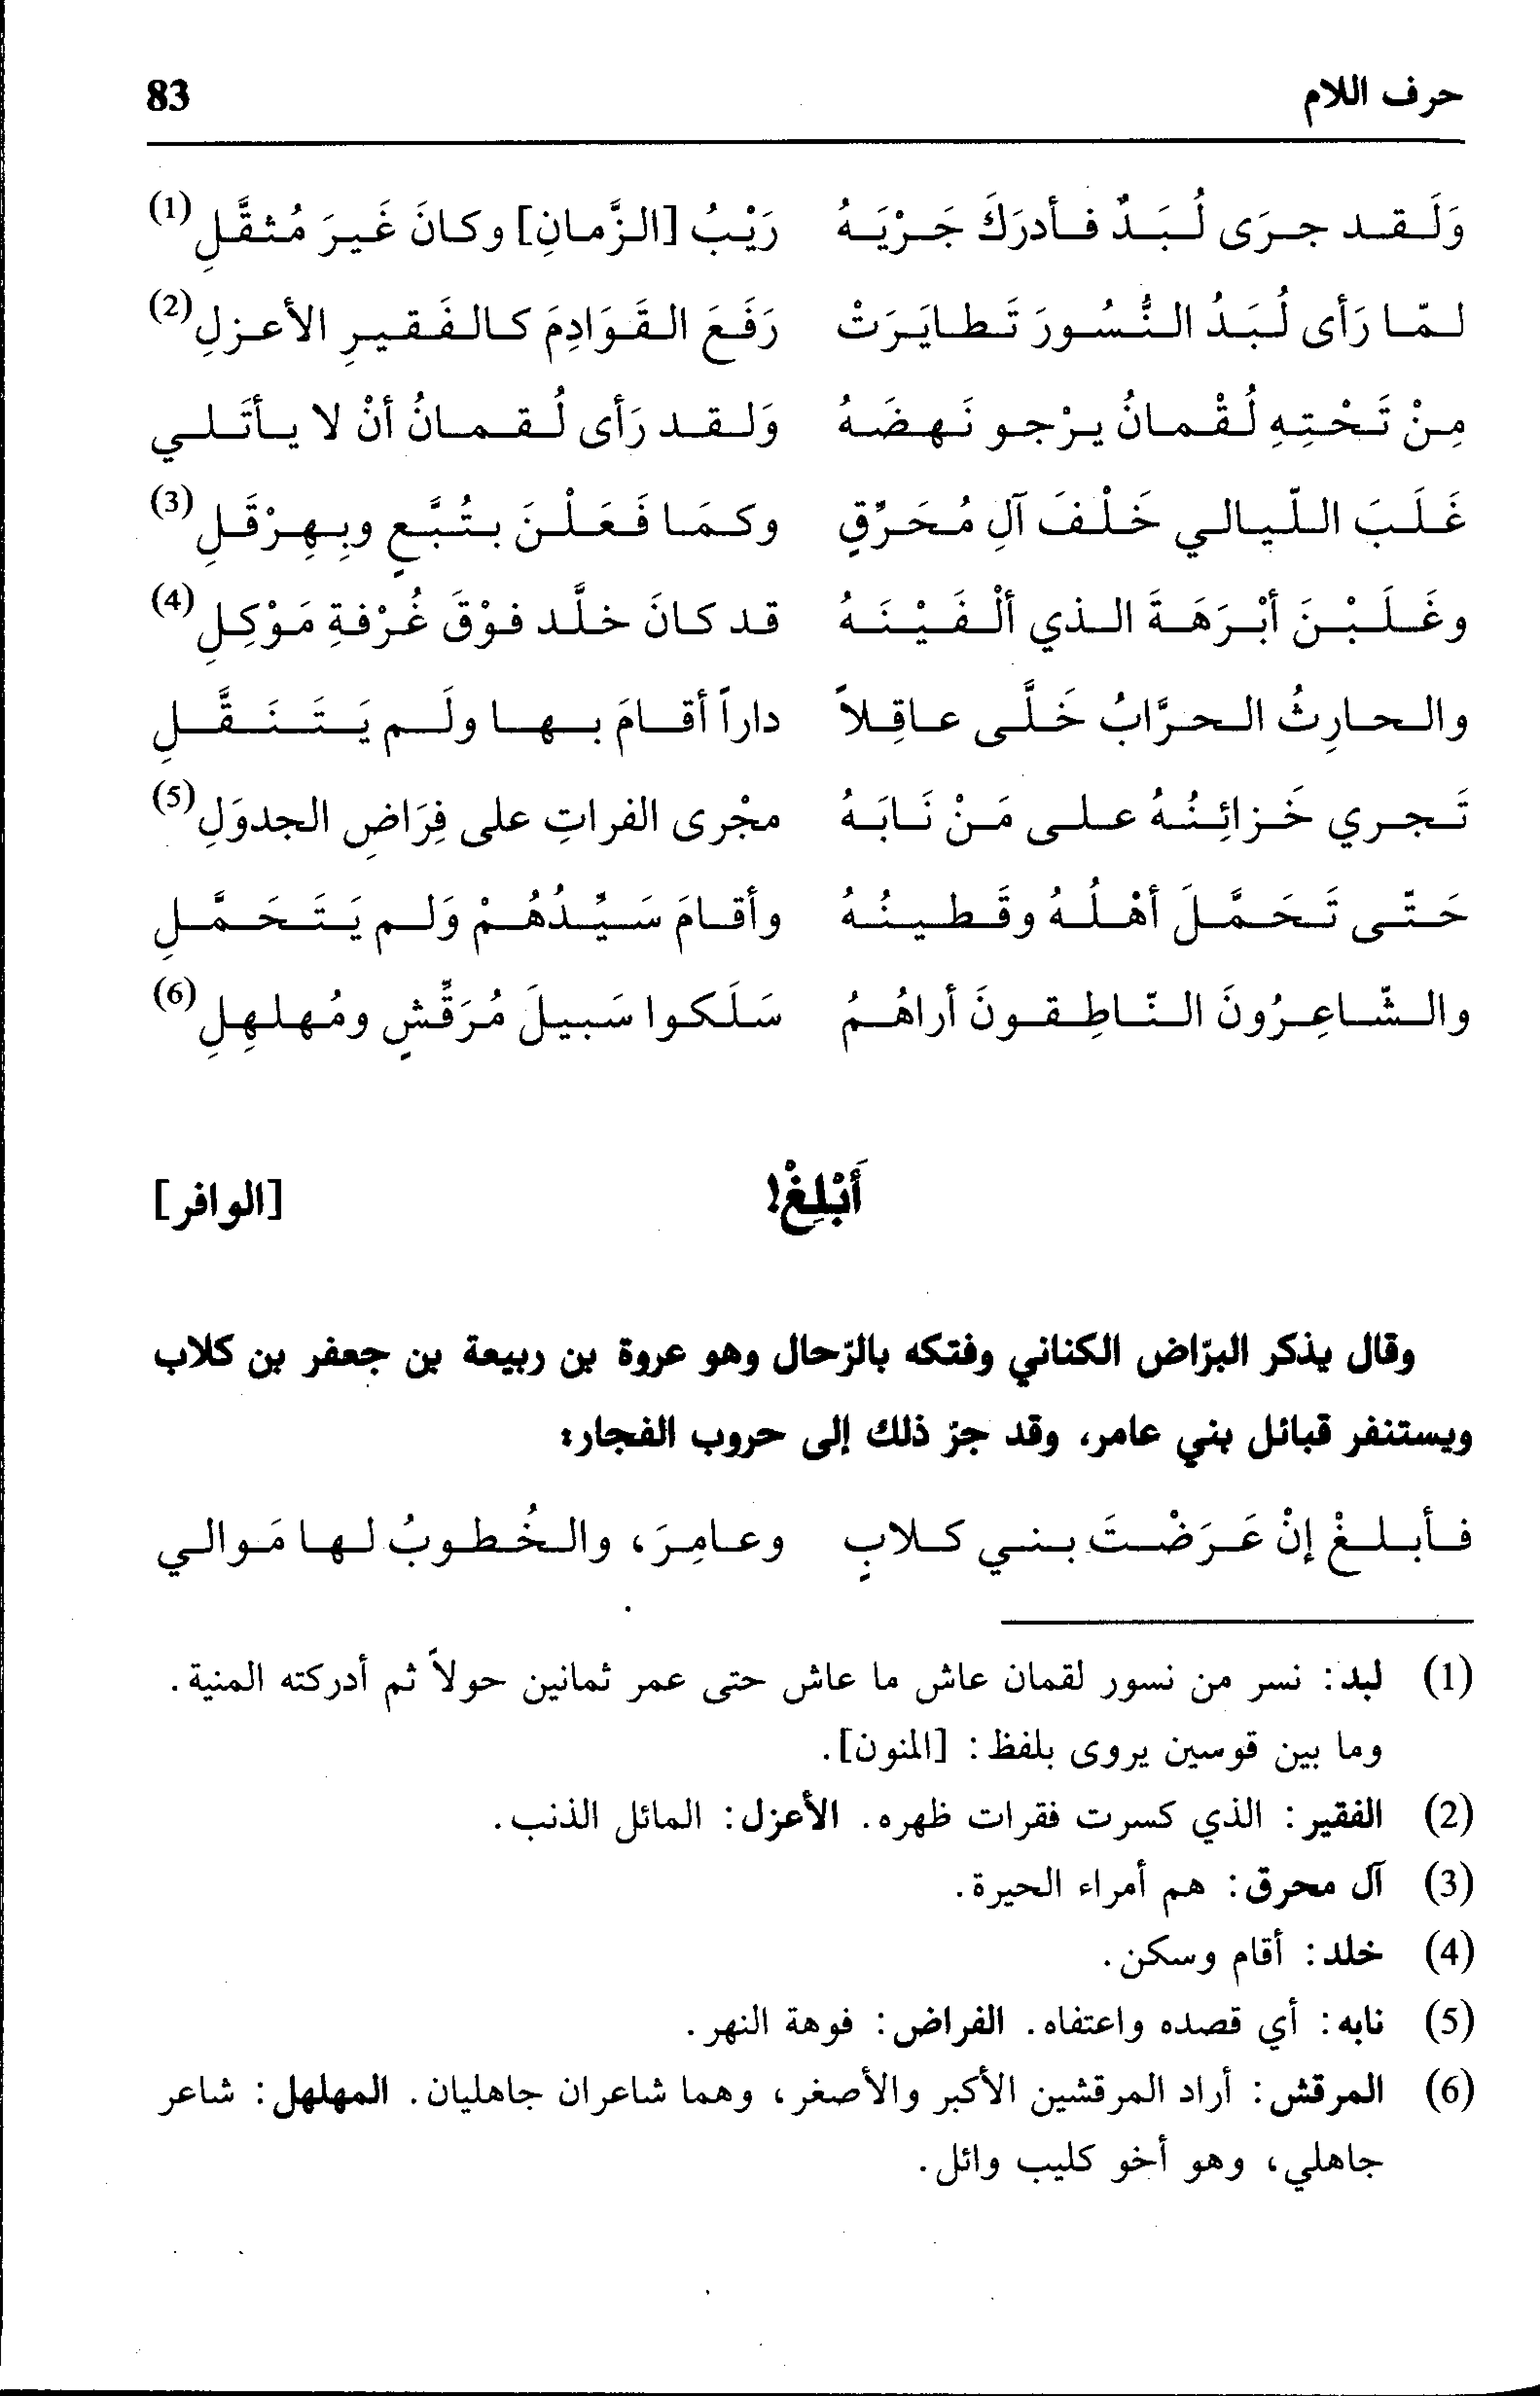 حرف اللام 83
وَلَقد جرَى لُبَدٌ فأدرَكَ جَرْيَهُ رَيْبُ [الزَّمانِ] وكانَ غَيرَ مُثقَّلِ (1)
لمّا رَأى لُبَدُ النُّسُورَ تَطايَرَتْ رَفَعَ القَوَادِمَ كالفَقيرِ الأعزلِ (2)
مِنْ تَحْتِهِ لُقْمانُ يرْجو نَهضَهُ وَلقد رَأى لُقمانُ أنْ لا يأتَلي
غَلَبَ اللّيالي خَلْفَ آلِ مُحَرِّقٍ وكمَا فَعَلْنَ بتُبَّعٍ وبِهِرْقَلِ (3)
وغَلَبْنَ أبْرَهَةَ الذي ألْفَيْنَهُ قد كانَ خلَّد فوْقَ غُرْفةِ مَوْكِلِ (4)
والحارِثُ الحرَّابُ خَلَّى عاقِلاً داراً أقامَ بها ولَم يَتَنَقَّلِ
تَجري خَزائِنُهُ على مَنْ نَابَهُ مجْرى الفراتِ على فِرَاضِ الجدوَلِ (5)
حَتّى تَحَمَّلَ أهْلُهُ وقَطينُهُ وأقامَ سَيِّدُهُمْ وَلم يَتَحَمَّلِ
والشّاعِرُونَ النّاطِقونَ أراهُمُ سَلَكوا سَبيلَ مُرَقِّشٍ ومُهلهِلِ (6)
أَبْلِغْ! [الوافر]
وقال يذكر البرّاض الكناني وفتكه بالرّحال وهو عروة بن ربيعة بن جعفر بن كلاب
ويستنفر قبائل بني عامر، وقد جرّ ذلك إلى حروب الفجار:
فأبلغْ إنْ عَرَضْتَ بني كلابٍ وعامِرَ، والخُطوبُ لها مَوالي
(1) لبد: نسر من نسور لقمان عاش ما عاش حتى عمر ثمانين حولاً ثم أدركته المنية.
وما بين قوسين يروى بلفظ: [المنون].
(2) الفقير: الذي كسرت فقرات ظهره. الأعزل: المائل الذنب.
(3) آل محرق: هم أمراء الحيرة.
(4) خلد: أقام وسكن.
(5) نابه: أي قصده واعتفاه. الفراض: فوهة النهر.
(6) المرقش: أراد المرقشين الأكبر والأصغر، وهما شاعران جاهليان. المهلهل: شاعر
جاهلي، وهو أخو كليب وائل.